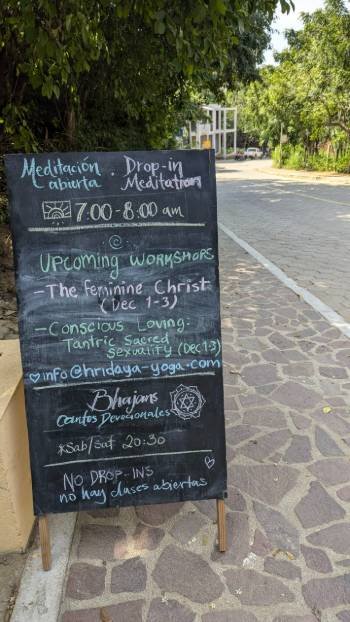 Meditación abierta · Drop-in Meditation
7:00-8:00 am
@
UPCOMING WORKSHOPS
- The Feminine Christ
(Dec 1-3)
- Conscious Loving:
Tantric Sacred
Sexuality (Dec 1-3)
♡ info@hridaya-yoga.com
Bhajans
Cantos Devocionales
*Sab/Sat 20:30
NO DROP-INS
no hay clases abiertas